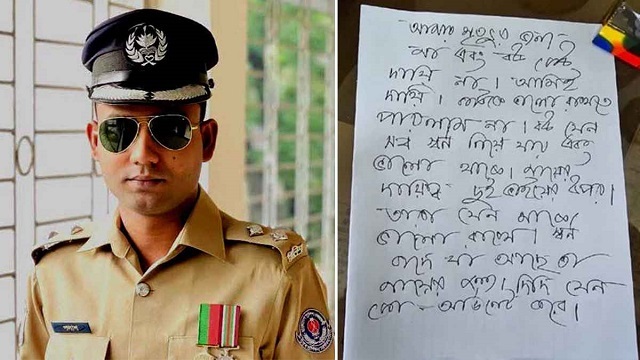 পলাশ
আমার মৃত্যুর জন্য
মা এবং বউ কেউ
দায়ী না। আমিই
দায়ী। কাউকে ভালো রাখতে
পারলাম না। বউ যেন
সব স্বর্ণ নিয়ে যায় এবং
ভালো থাকে। মায়ের
দায়িত্ব দুই ভাইয়ের উপর।
তারা যেন মাকে
ভালো রাখে। স্বর্ণ
বাদে যা আছে তা
মায়ের জন্য। দিদি যেন
কো-অর্ডিনেট করে।